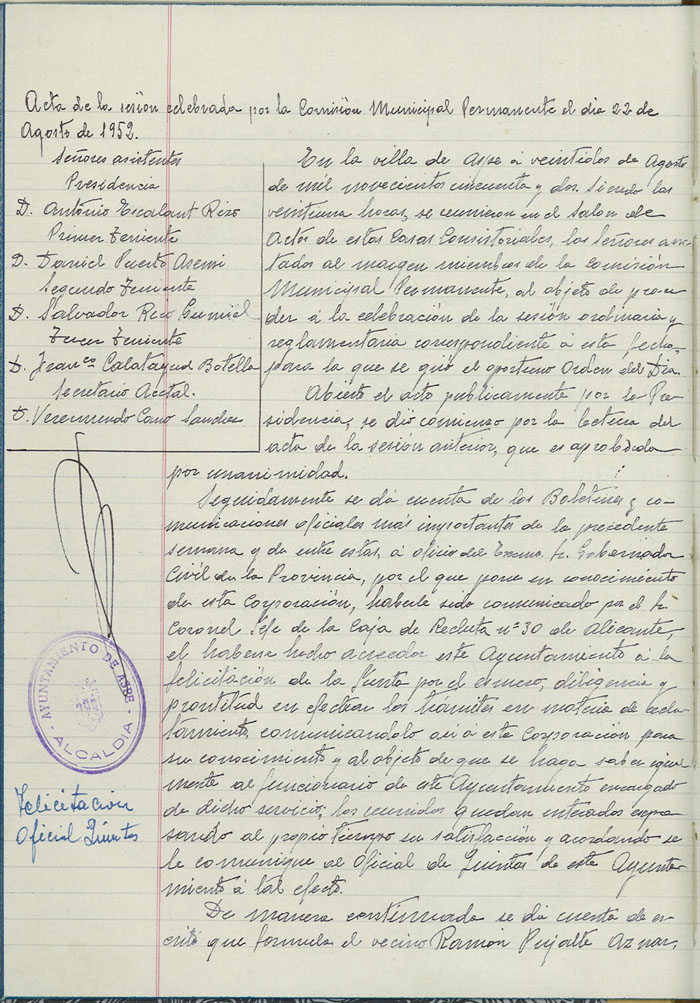 Acta de la sesión celebrada por la Comisión Municipal Permanente el dia 22 de
Agosto de 1952.
Señores asistentes
Presidencia
D. Antonio Escalant Rizo
Primer Teniente
D. Daniel Puerto Asensi
Segundo Teniente
D. Salvador Rico
Tercer Teniente
D. Franco Calatayud Botella
Secretario Acctal.
D. Veremundo Cano
En la villa de Aspe á veintidos de Agosto
de mil novecientos cincuenta y dos. Siendo las
veintiuna horas, se reunieron en el Salon de
Actos de estas Casas Consistoriales, los Señores ano-
tados al margen miembros de la Comisión
Municipal Permanente, al objeto de proce-
der á la celebración de la sesión ordinaria y
reglamentaria correspondiente á esta fecha
para la que se giró el oportuno Orden del Dia.
Abierto el acto publicamente por la Pre-
sidencia, se dió comienzo por la lectura del
acta de la sesión anterior, que es aprobada
por unanimidad.
Seguidamente se dá cuenta de los Boletines y co-
municaciones oficiales más importantes de la precedente
semana y de entre estas, á oficio del Excmo. Sr. Gobernador
Civil de la Provincia, por el que pone en conocimiento
de esta Corporación, haberle sido comunicado por el Sr.
Coronel Jefe de la Caja de Recluta nº 30 de Alicante,
el haberse hecho acreedor este Ayuntamiento á la
felicitación de la Junta por el esmero, diligencia y
prontitud en efectuar los trámites en materia de reclu-
tamiento, comunicandolo asi á esta Corporación para
su conocimiento y al objeto de que se haga saber igual-
mente al funcionario de este Ayuntamiento encargado
de dicho servicio; los reunidos quedan enterados expre-
sando al propio tiempo su satisfacción y acordando se
le comunique al Oficial de Quintas de este Ayunta-
miento á tal efecto.
De manera continuada se dá cuenta de es-
crito que formula el vecino Ramón Pujalte Aznar,
AYUNTAMIENTO DE ASPE
ALCALDIA
Felicitacion
Oficial Quintas